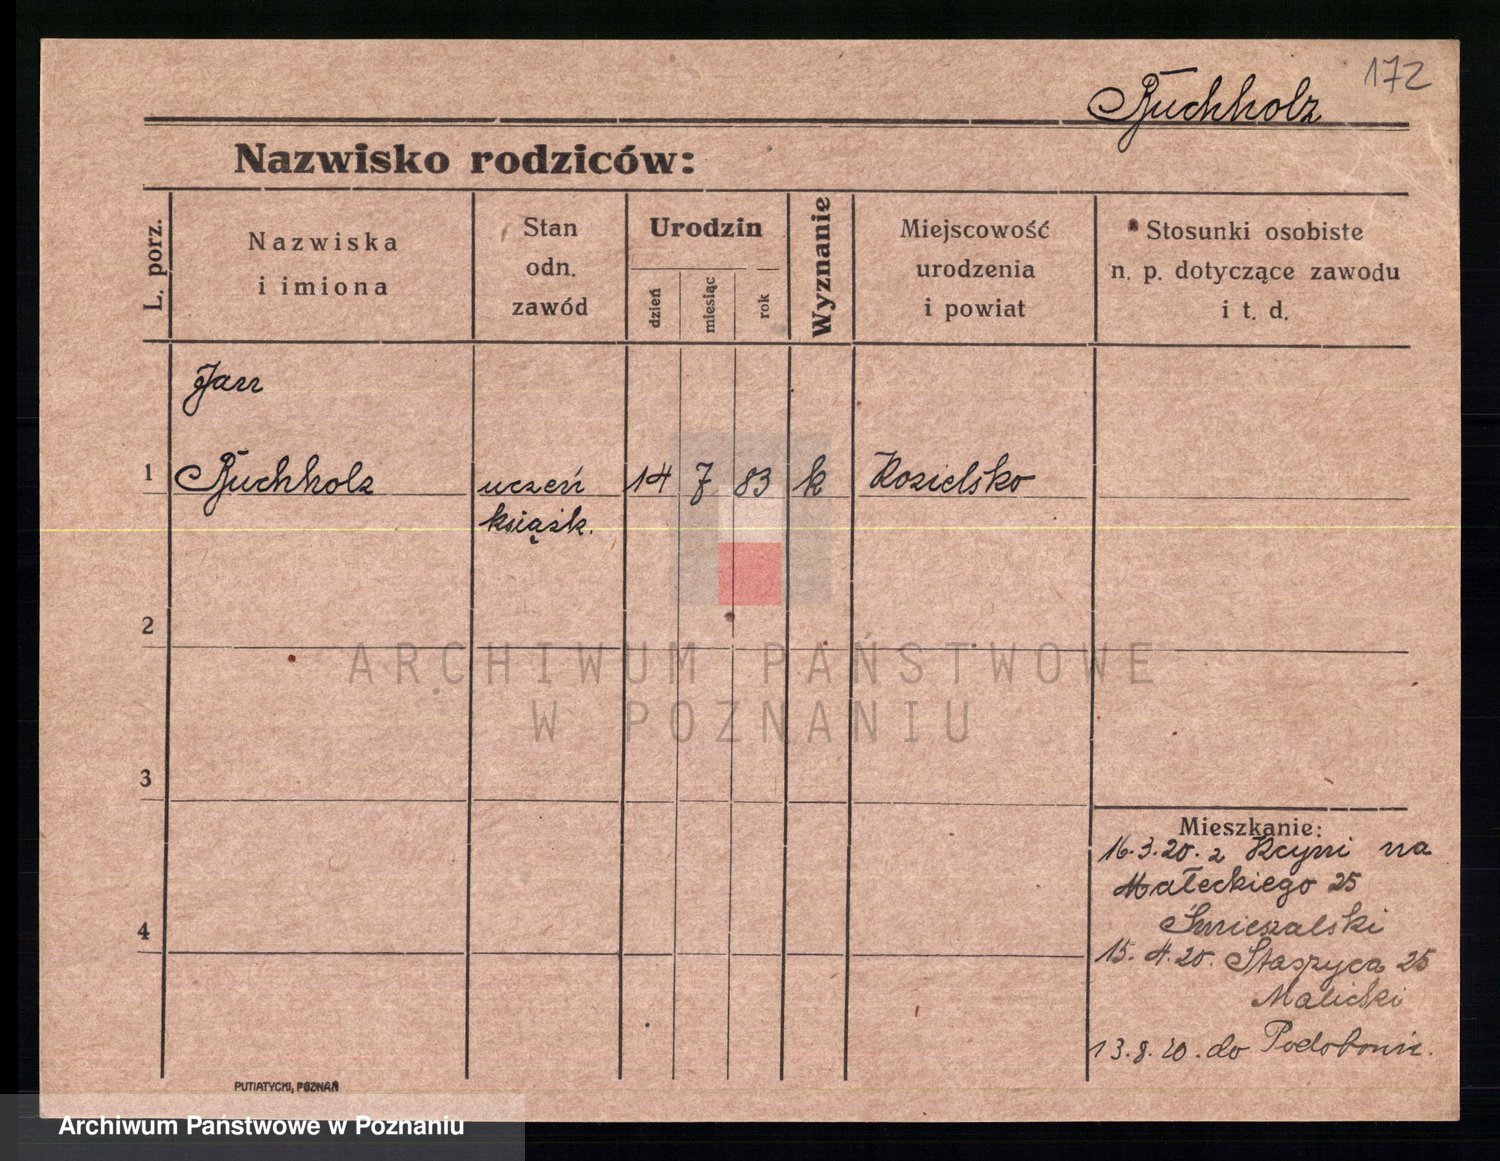 172
Buchholz
Nazwisko rodziców:
L. porz.
Nazwiska
i imiona
Stan
odn.
zawód
Urodzin
dzień
miesiąc
rok
Wyznanie
Miejscowość
urodzenia
i powiat
Stosunki osobiste
n. p. dotyczące zawodu
i t. d.
Jan
1 Buchholz uczeń 14 7 83 k Kozielsko
książk.
2
3
4
Mieszkanie:
16.3.20. z Kcyni na
Małeckiego 25
Śmieszalski
15. 4. 20. Staszyca 25
Malicki
13. 8. 20. do
PUTIATYCKI, POZNAŃ
ARCHIWUM PAŃSTWOWE
W POZNANIU
Archiwum Państwowe w Poznaniu